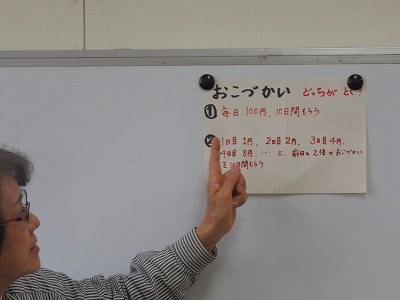 おこづかい どっちがとく?
① 毎日 100円、10日間もらう
② 1日目 1円、2日目 2円、3日目 4円、
4日目 8円、… と、前日の2倍のおこづかい
を10日間もらう